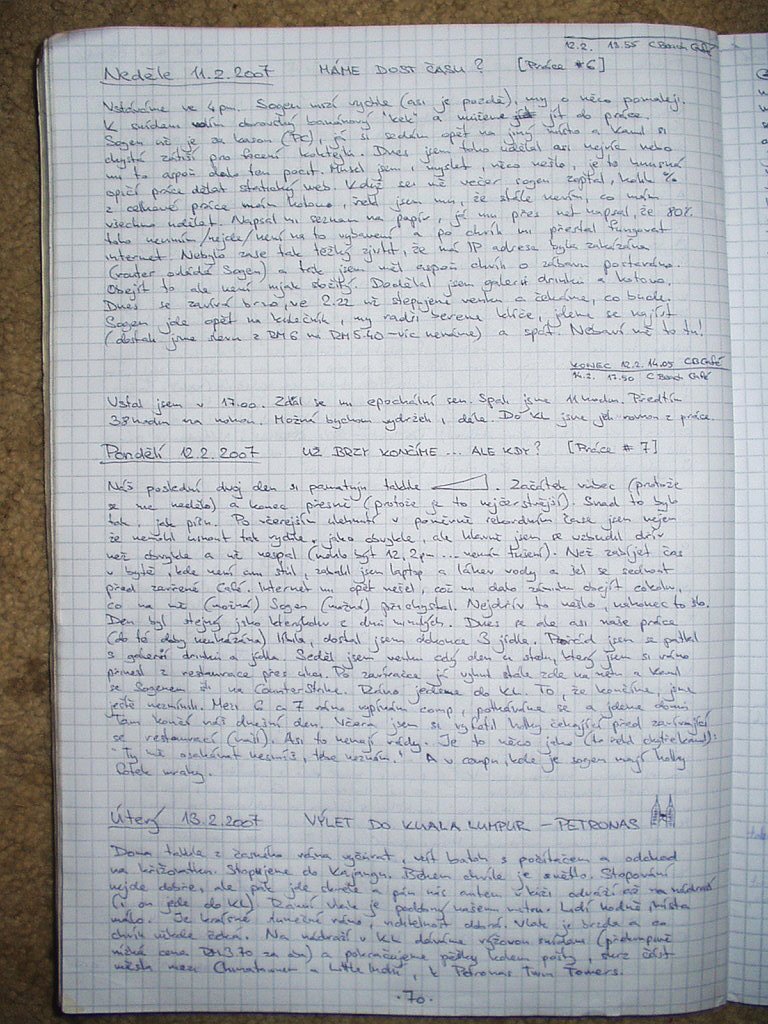 12.2. 13.55 C Beach Café
Neděle 11.2.2007 MÁME DOST ČASU? [Práce #6]
Vstáváme ve 4 pm. Sogen mizí rychle (asi je pozdě), my o něco pomaleji.
K snídani volím banánový "kek" a můžeme jít do práce.
Sogen už je za kasou (PC), já si sedám opět na jiný místo a Kamil si
chystá zátiší pro focení koktejlů. Dnes jsem toho udělal asi nejvíc nebo
mi to aspoň dalo ten pocit. Musel jsem i myslet, něco nešlo, je to
opičí práce dělat statický web. Když se mě večer Sogen zeptal, kolik %
z celkové práce mám hotovo, řekl jsem mu, že stále nevím, co mám
všechno udělat. Napsal mi seznam na papír, já mu přes net napsal, že 80%
toho neumím/nejde/není na to vybavení a po chvíli mi přestal fungovat
internet. Nebylo zase tak těžký zjistit, že má IP adresa byla zakázána
(router ovládá Sogen) a tak jsem měl aspoň chvíli o zábavu postaráno.
Obejít to ale není nijak složitý. Dodělal jsem galerii drinků a hotovo.
Dnes se zavírá brzo, ve 2.22 už stepujeme venku a čekáme, co bude.
Sogen jde opět na kulečník, my radši bereme klíče, jdeme se najíst
(dostali jsme slevu z RM6 na RM5.40 - víc nemáme) a spát. Nebaví mě to tu!
KONEC 12.2. 14.05 CB Café
14.2. 17.50 C Beach Café
Vstal jsem v 17.00. Zdál se mi epochální sen. Spali jsme 11 hodin. Předtím
38 hodin na nohou. Možná bychom vydrželi i déle. Do KL jsme jeli rovnou z práce.
Pondělí 12.2.2007 UŽ BRZY KONČÍME... ALE KDY? [Práce #7]
Náš poslední dvoj den si pamatuju takhle . Začátek vůbec (protože
se nic nedělo) a konec přesně (protože je to nejčerstvější). Snad to bylo
tak, jak píšu. Po včerejším ulehnutí v poměrně rekordním čase jsem nejen
že nemohl usnout tak rychle, jako obvykle, ale hlavně jsem se vzbudil dřív
než obvykle a už nespal (mohlo být 12, 2 pm ... nemám tušení). Než zabíjet čas
v bytě, kde není ani stůl, zabalil jsem laptop a láhev vody a šel se sednout
před zavřené Café. Internet mi opět nešel, což mi dalo záminku obejít cokoliv,
co na mě (možná) Sogen (možná) přichystal. Nejdřív to nešlo, nakonec to šlo.
Den byl stejný jako kterýkoliv z dní minulých. Dnes se ale asi naše práce
(do té doby neukázána) líbila, dostal jsem dokonce 3 jídla. Pořád jsem se patlal
s galerií drinků a jídla. Seděl jsem venku celý den u stolu, který jsem si ráno
přinesl z restaurace přes ulici. Po zavíračce já vyhnil stále zde na netu a Kamil
se Sogenem šli na CounterStrike. Ráno jedeme do KL. To, že končíme, jsme
ještě nezmínili. Mezi 6 a 7 ráno vypínám comp, potkáváme se a jdeme domů.
Tam končí náš dnešní den. Včera jsem si vyfotil holky čekající před zavírající
se restaurací (naší). Asi to nemají rády. Je to něco jako (to řekl Kamil):
"Ty mě očekávat nesmíš, tebe neznám." A v compu, kde je Sogen mají holky
fotek mraky.
Úterý 13.2.2007 VÝLET DO KUALA LUMPUR - PETRONAS
Doma takhle z časného rána vyčůrat, vzít batoh s počítačem a odchod
na křižovatku. Stopujeme do Kajangu. Během chvíle je světlo. Stopování
nejde dobře, ale pak jde skvěle a pán nás autem odváží až na nádraží
(i on jede do KL). Ranní vlak je podobný našemu metru. Lidí hodně, místa
málo. Je krásné sluneční ráno, viditelnost dobrá. Vlak je brzda a co
chvíli někde čeká. Na nádraží v KL dáváme rýžovou snídani (překvapivě
nízká cena RM3.70 za dva) a pokračujeme pěšky kolem pošty, skrz část
města mezi Chinatownem a Little Indií, k Petronas Twin Towers.
·70·